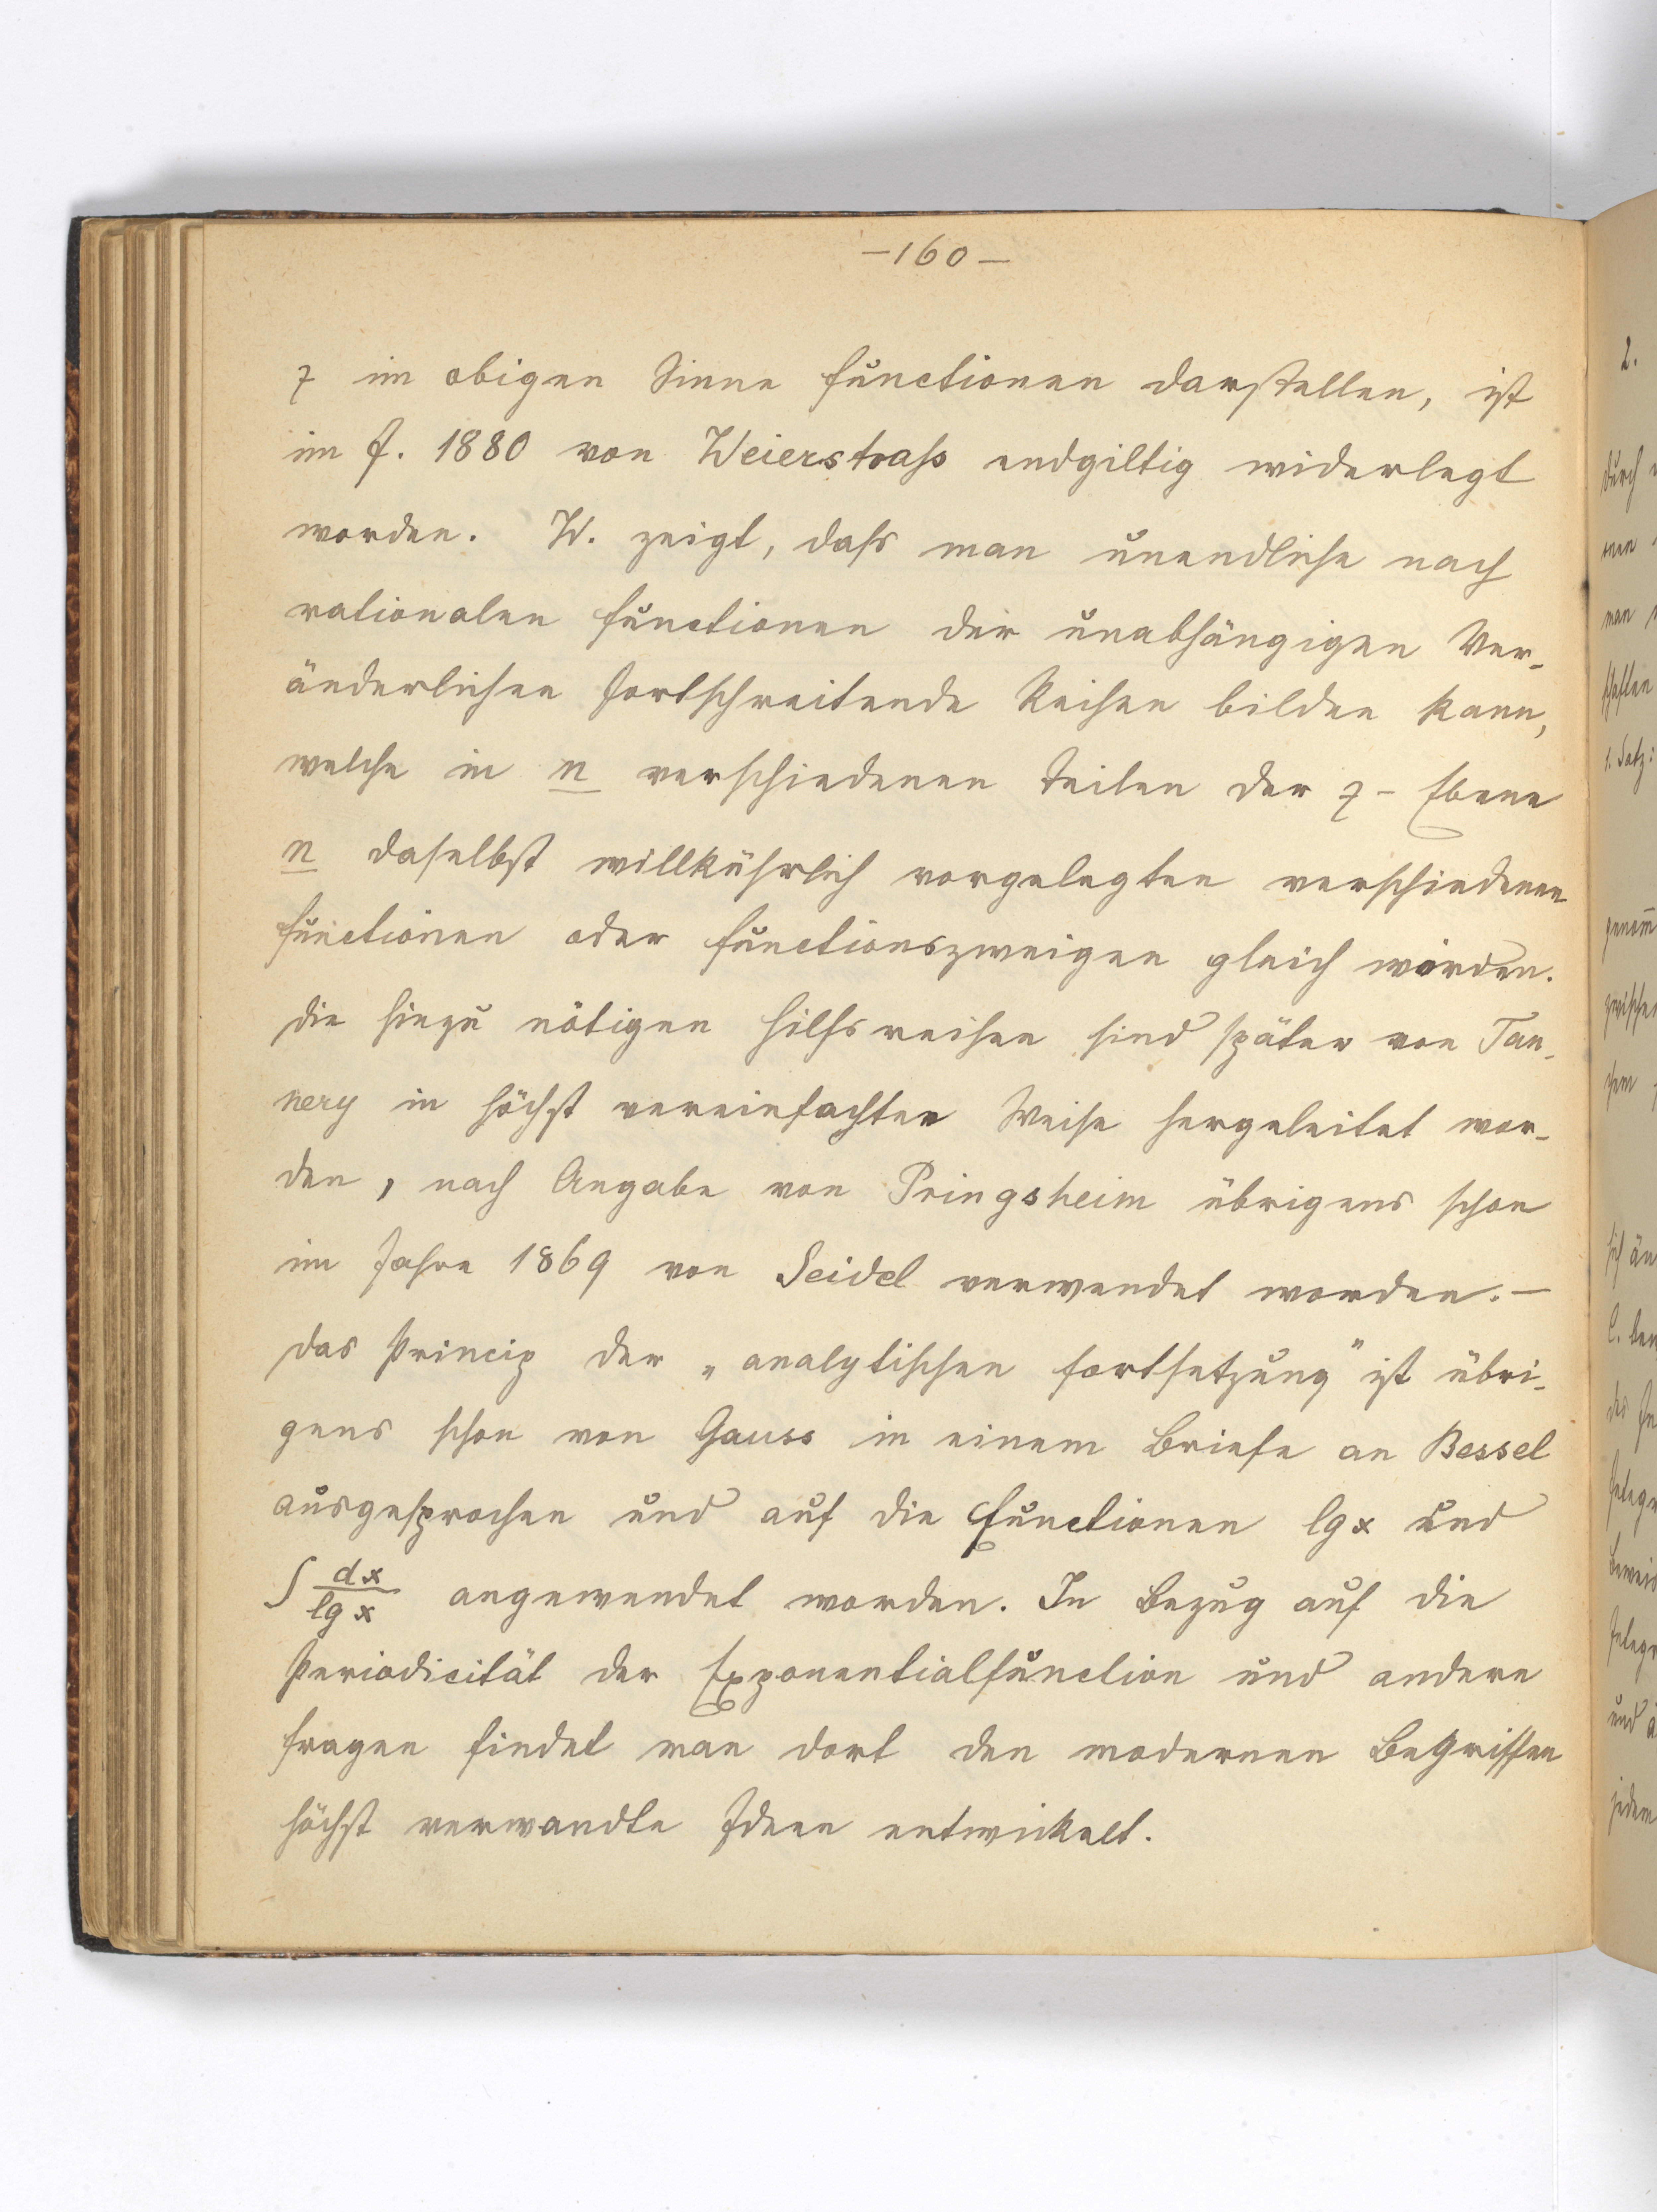 —160—
z im obigen Sinne Functionen darstellen, ist
im J. 1880 von Weierstraß endgiltig widerlegt
worden. W. zeigt, daß man unendliche nach
rationalen Functionen der unabhängigen Ver-
änderlichen fortschreitende Reihen bilden kann,
welche in n verschiedenen Teilen der z-Ebene
n daselbst willkührlich vorgelegten verschiedenen
Functionen oder Functionszweigen gleich würden.
Die hiezu nötigen Hilfsreihen sind später von Tan-
nery in höchst vereinfachter Weise hergeleitet wor-
den, nach Angabe von Pringsheim übrigens schon
im Jahre 1869 von Seidel verwendet worden. —
Das Princip der „analytischen Fortsetzung" ist übri-
gens schon von Gauss in einem Briefe an Bessel
ausgesprochen und auf die Functionen lg x und
∫ dx/lg x angewendet worden. In Bezug auf die
Periodicität der Exponentialfunction und andere
Fragen findet man dort den modernen Begriffen
höchst verwandte Ideen entwickelt.
2.
durch
man
1. Satz:
sich än
und
jedem